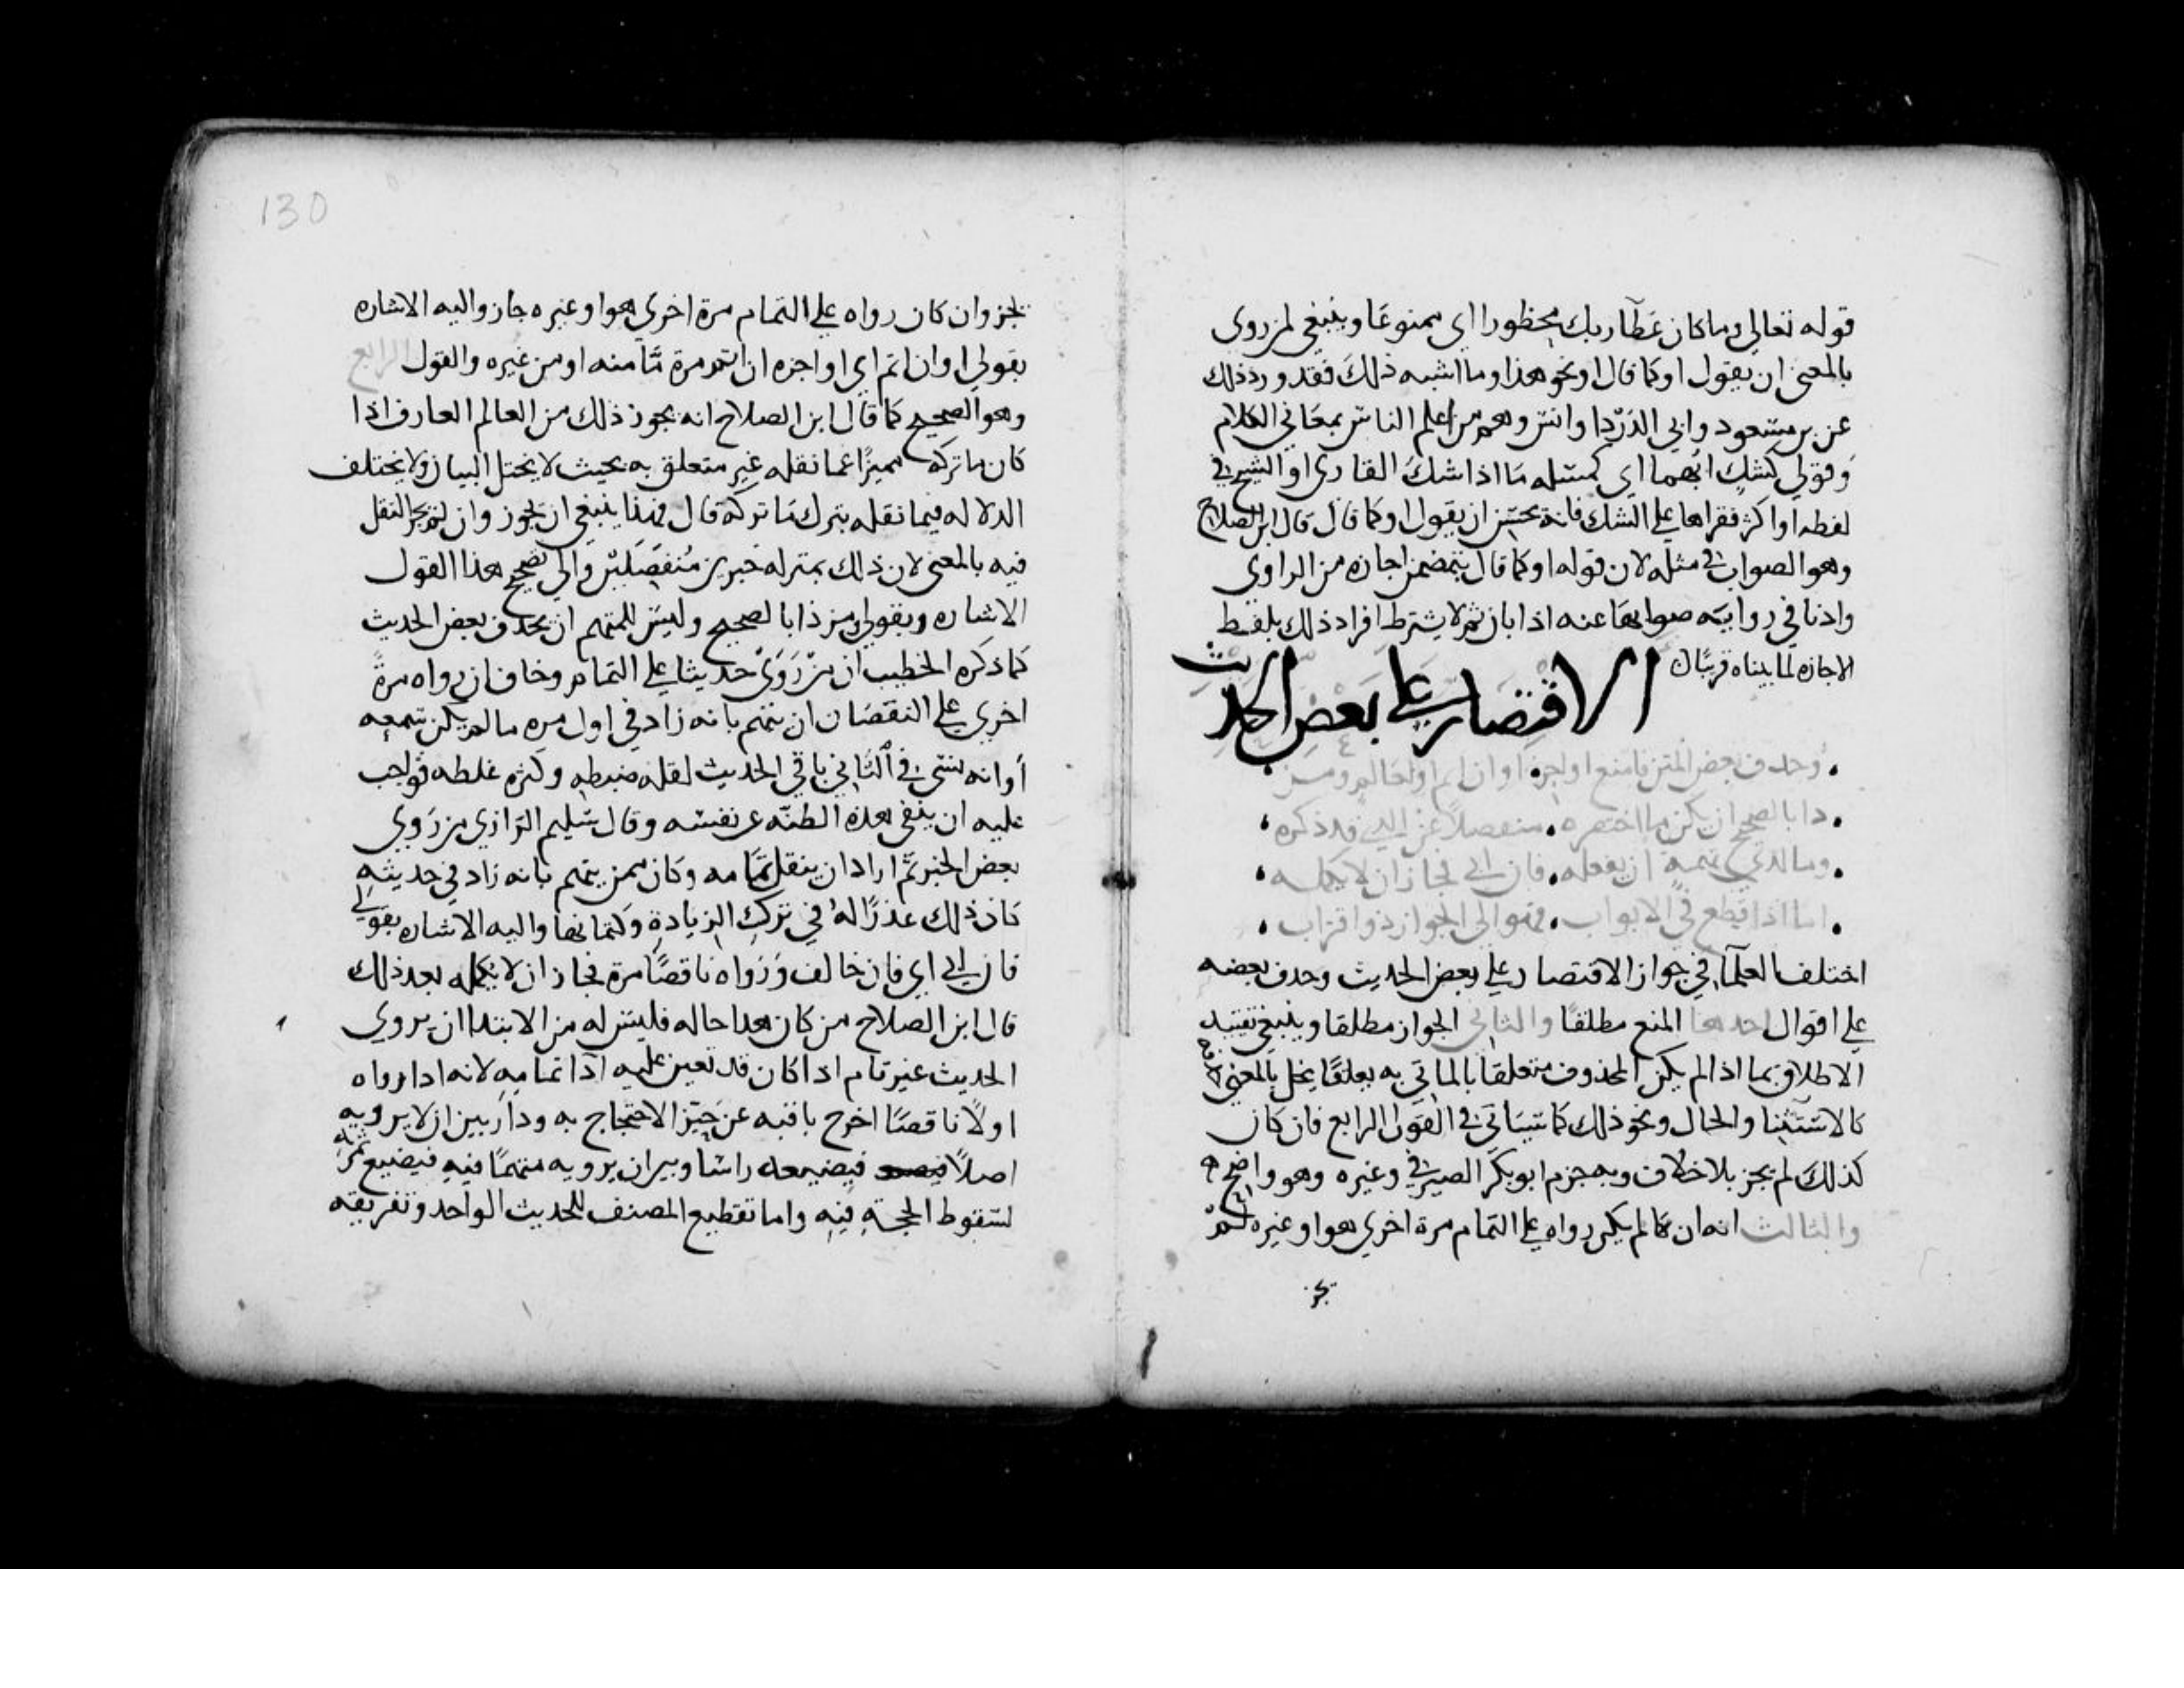 قوله تعالي وما كان عطآ ربك محظورا اي ممنوعا وينبغي لمن روى
بالمعنى ان يقول او كما قال او نحو هذا وما اشبه ذلك فقد ورد ذلك
عن بن مسعود وابي الدردا وانس وهم من اعلم الناس بمعاني الكلام
وقولي كشك ابهما اي كمسله ما اذا شك القاري او الشيخ في
لفظه او اكثر فقراها على الشك فانه يحسن ان يقول او كما قال قال ابن الصلاح
وهو الصواب في مثله لان قوله او كما قال يتضمن اجازه من الراوي
واذنا في رواية صوابها عنه اذا بان ثم لا يشترط افراد ذلك بلفظ
الاجازه لما بيناه قريبا
الاقتصار على بعض الحديث
وحذف بعض المتن فامنع او اجز او ان اتم او لعالم ومز
ذا بالصحيح ان يكن ما اختصره منفصلا عن الذي قد ذكره
وما لذي تهمة ان يفعله فان ابى فجاز ان لا يكمله
اما اذا قطع في الابواب فهو الى الجواز ذو اقتراب
اختلف العلمآ في جواز الاقتصار على بعض الحديث وحذف بعضه
على اقوال احدها المنع مطلقا والثاني الجواز مطلقا وينبغي تقييد
الاطلاق بما اذا لم يكن المحذوف متعلقا بالماتي به تعلقا يخل بالمعنى حذفه
كالاستثنا والحال ونحو ذلك كما سياتي في القول الرابع فان كان
كذلك لم يجز بلا خلاف وبه جزم ابو بكر الصيرفي وغيره وهو واضح
والثالث انه ان كان لم يكن رواه على التمام مرة اخري هو او غيره لم
يجز
130
يجز وان كان رواه على التمام مرة اخري هو او غيره جاز واليه الاشاره
بقولي او ان اتم اي او اجزه ان اتم مرة ما منه او من غيره والقول الرابع
وهو الصحيح كما قال ابن الصلاح انه يجوز ذلك من العالم العارف اذا
كان ما تركه مميزا عما نقله غير متعلق به بحيث لا يختل البيان ولا يختلف
الدلاله فيما نقله بترك ما تركه قال فهذا ينبغي ان يجوز وان لم يجز النقل
فيه بالمعنى لان ذلك بمنزله خبرين منفصلين والي تصحيح هذا القول
الاشاره وبقولي ومز ذا بالصحيح وليس للمتهم ان يحذف بعض الحديث
كما ذكره الخطيب ان من روى حديثا على التمام وخاف ان رواه مرة
اخري على النقصان ان يتهم بانه زاد في اول مره ما لم يكن سمعه
او انه نسي في الثاني باقي الحديث لقله ضبطه وكثره غلطه فواجب
عليه ان ينفي هذه الظنه عن نفسه وقال سليم الرازي من روي
بعض الخبر ثم اراد ان ينقل تمامه وكان ممن يتهم بانه زاد في حديثه
كان ذلك عذرا له في ترك الزيادة وكتمانها واليه الاشاره بقولي
فان ابي اي فان خالف ورواه ناقصا مرة فجاز ان لا يكمله بعد ذلك
قال ابن الصلاح من كان هذا حاله فليس له من الابتدا ان يروي
الحديث غير تام اذا كان قد تعين عليه ادآ تمامه لانه اذا رواه
اولا ناقصا اخرج باقيه عن حيز الاحتجاج به ودار بين ان لا يرويه
اصلا فيضيعه راسا وبين ان يرويه متهما فيه فيضيع ثمرته
لسقوط الحجة فيه واما تقطيع المصنف للحديث الواحد وتفريقه